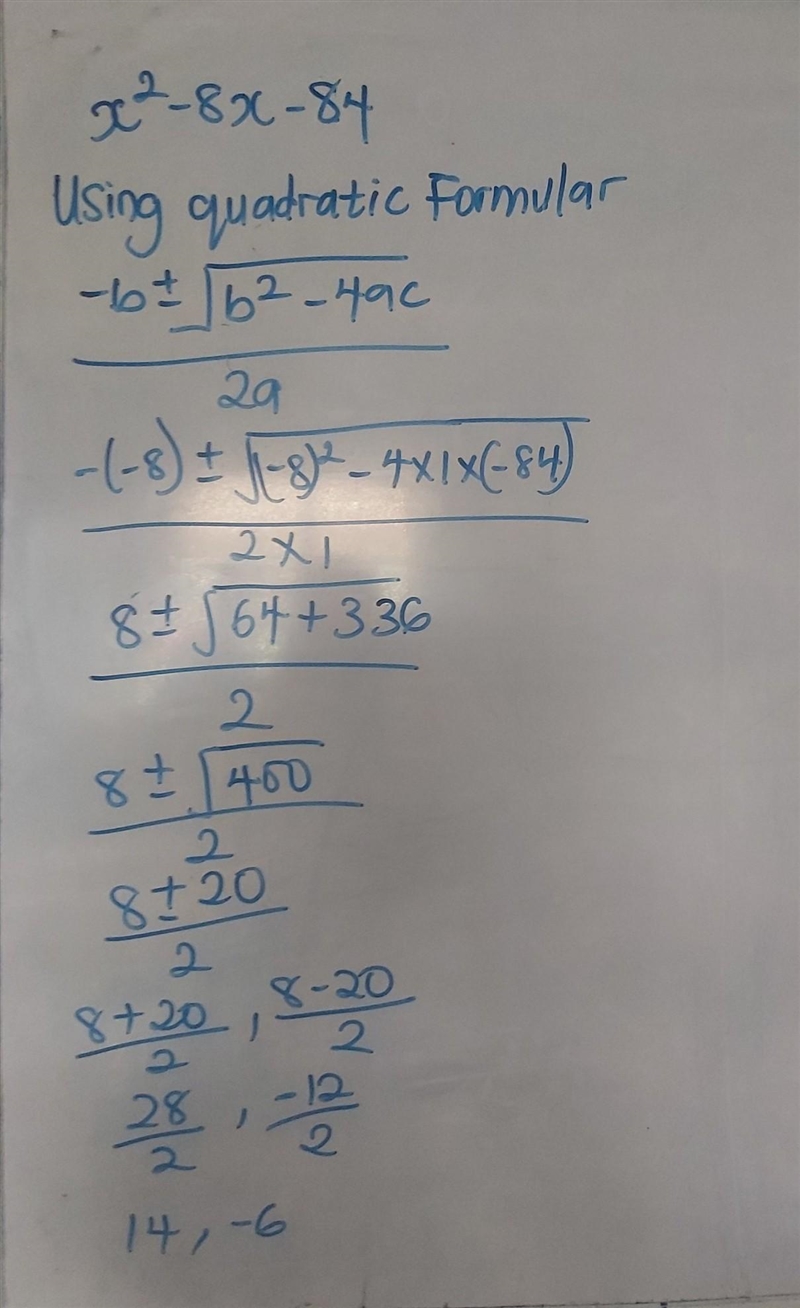 x² - 8x - 84
Using quadratic Formular
-b ± √b² - 4ac
2a
-(-8) ± √(-8)² - 4×1×(-84)
2×1
8 ± √64 + 336
2
8 ± √400
2
8 ± 20
2
8 + 20 , 8 - 20
2 2
28 , -12
2 2
14 , -6